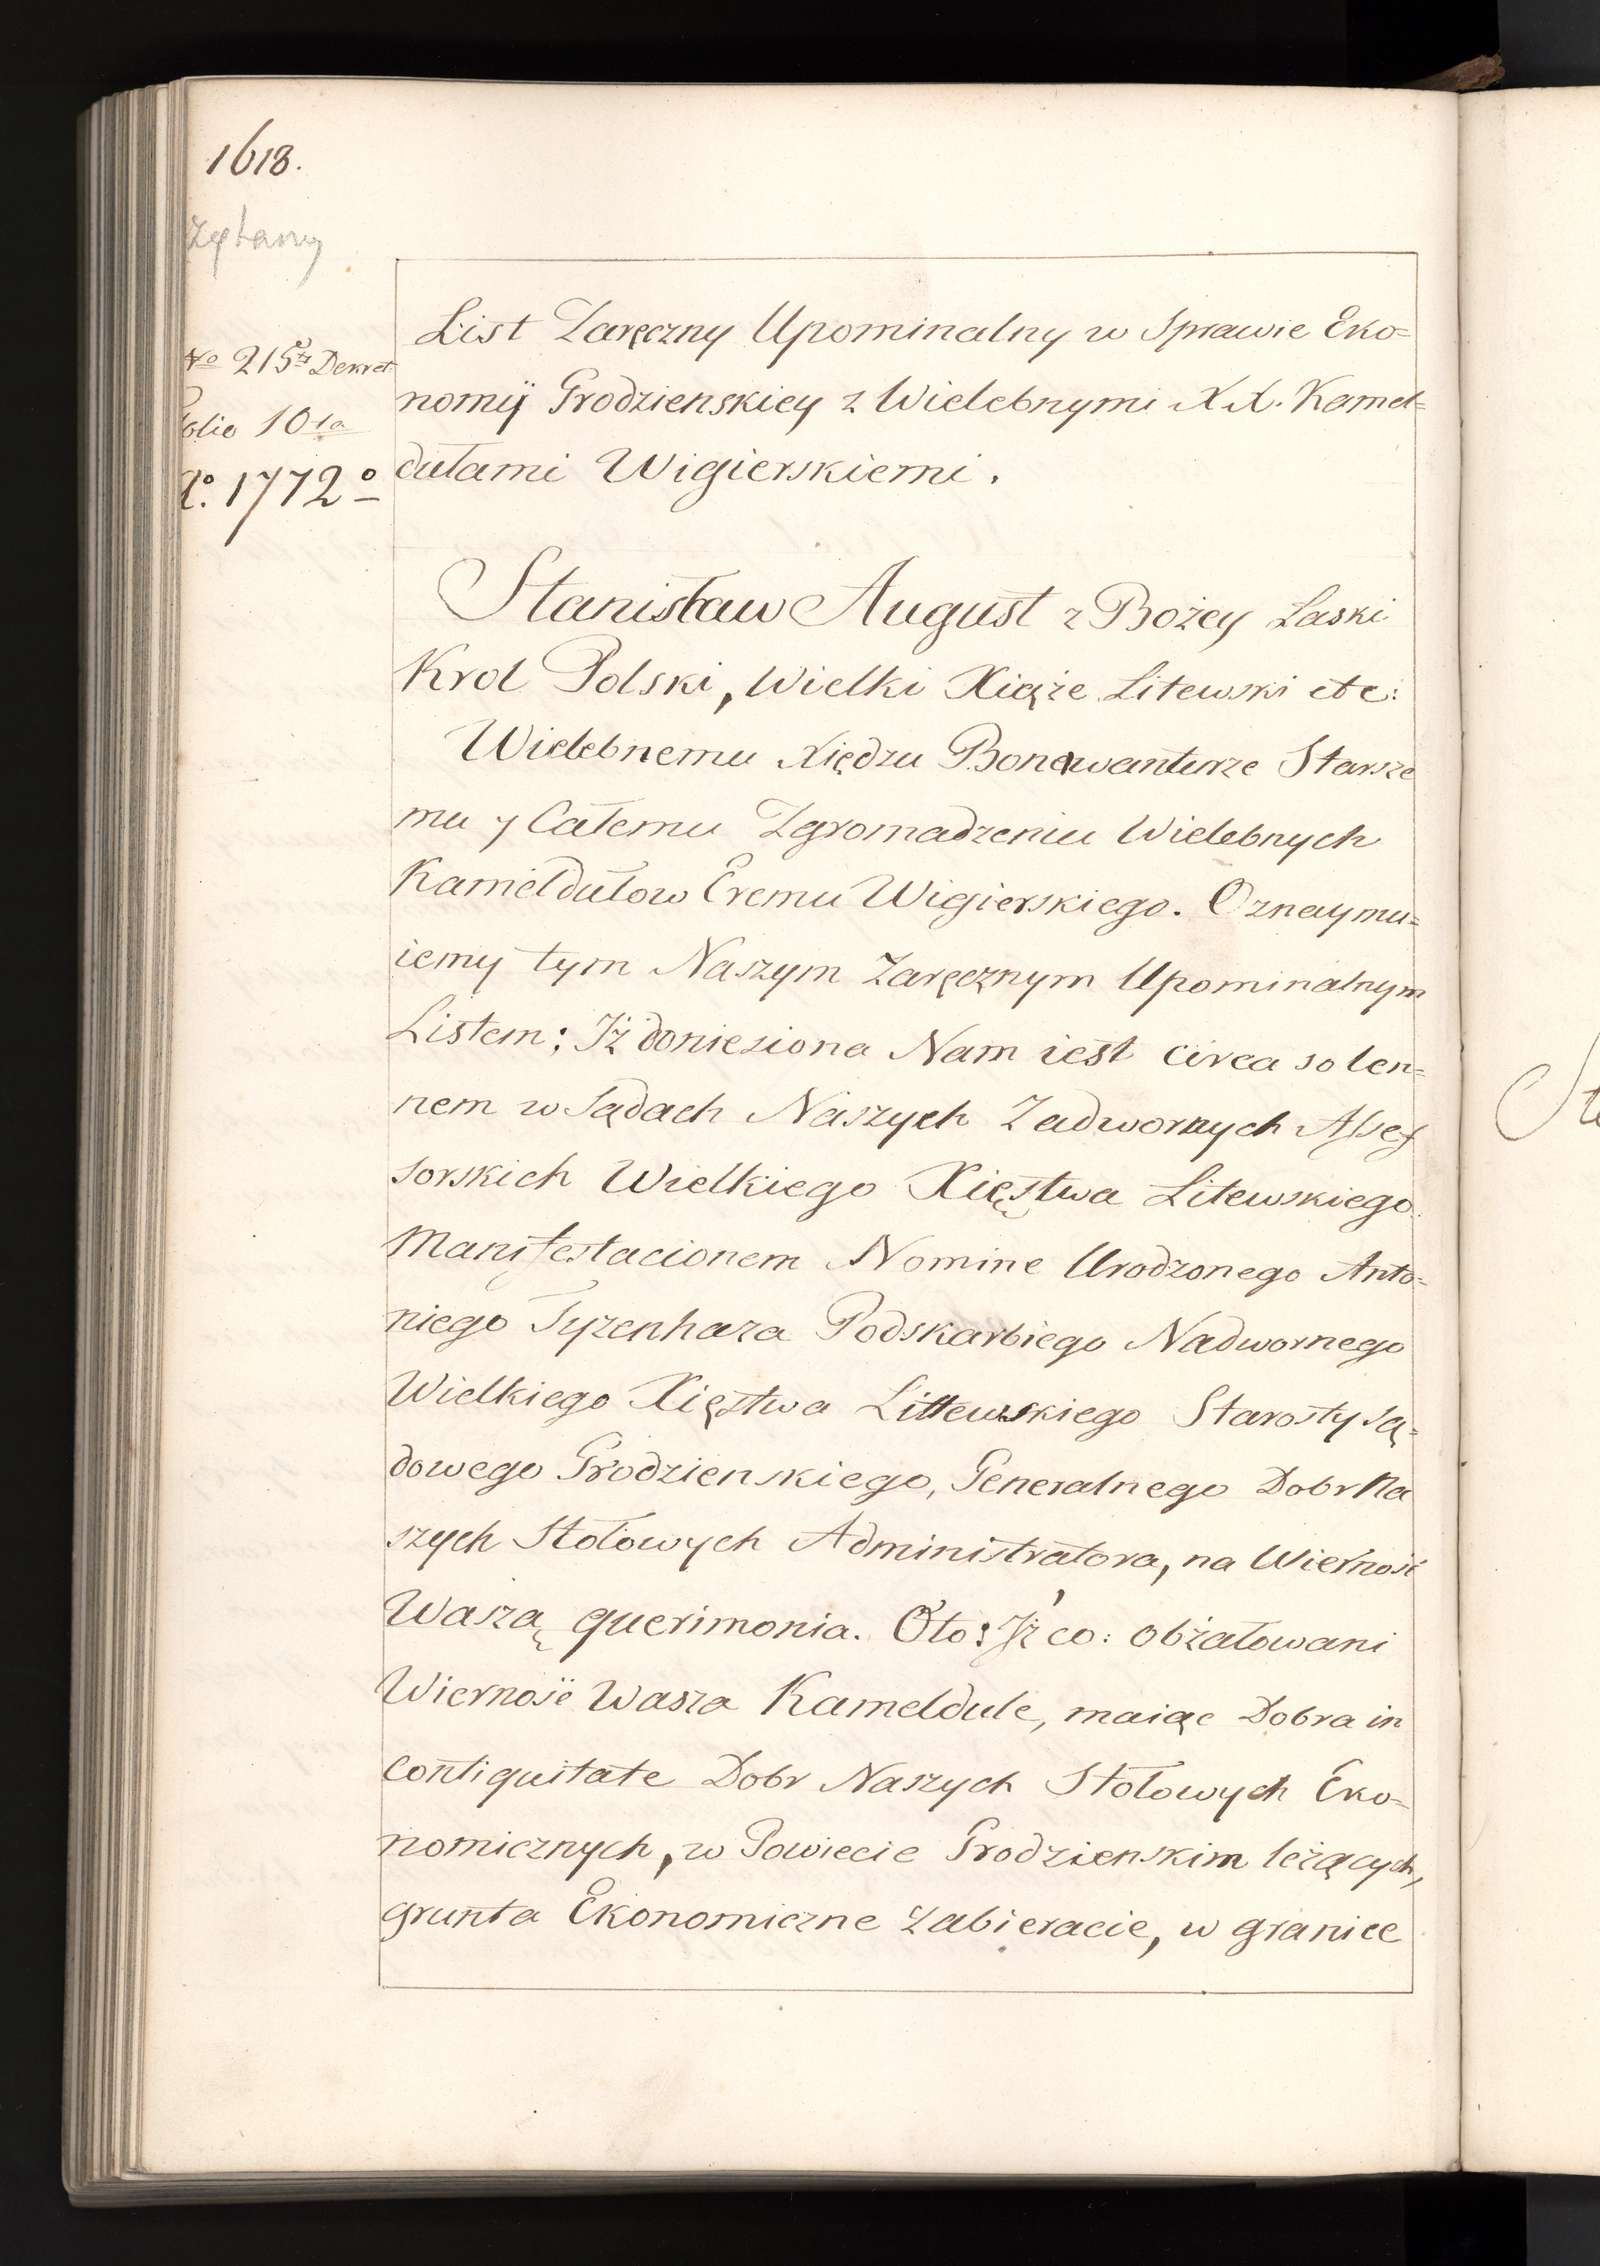 1618.
No 215 Dekret
folio 10
Ao. 1772o
List Zaręczny Upominalny w Sprawie Eko=
nomij Grodzienskiey z Wielebnymi XX. Kamel=
dułami Wigierskiemi.
Stanisław August z Bożey Łaski
Krol Polski, Wielki Xiąże Litewski etc:
Wielebnemu Xiędzu Bonawanturze Starsze
mu y Całemu Zgromadzeniu Wielebnych
Kameldułow Eremu Wigierskiego. Oznaymu=
iemy tym Naszym Zaręcznym Upominalnym
Listem; Iż doniesiona Nam iest circa solen=
nem w Sądach Naszych Zadwornych Asses
sorskich Wielkiego Xięstwa Litewskiego
Manifestacionem Nomine Urodzonego Anto=
niego Tyzenhaza Podskarbiego Nadwornego
Wielkiego Xięstwa Littewskiego Starosty Są=
dowego Grodzienskiego, Generalnego Dobr Na
szych Stołowych Administratora, na Wierność
Waszą querimonia. Oto: Iż co: obżałowani
Wierność Wasza Kameldule, maiąc Dobra in
contiguitate Dobr Naszych Stołowych Eko=
nomicznych, w Powiecie Grodzienskim leżących,
grunta Ekonomiczne zabieracie, w granice